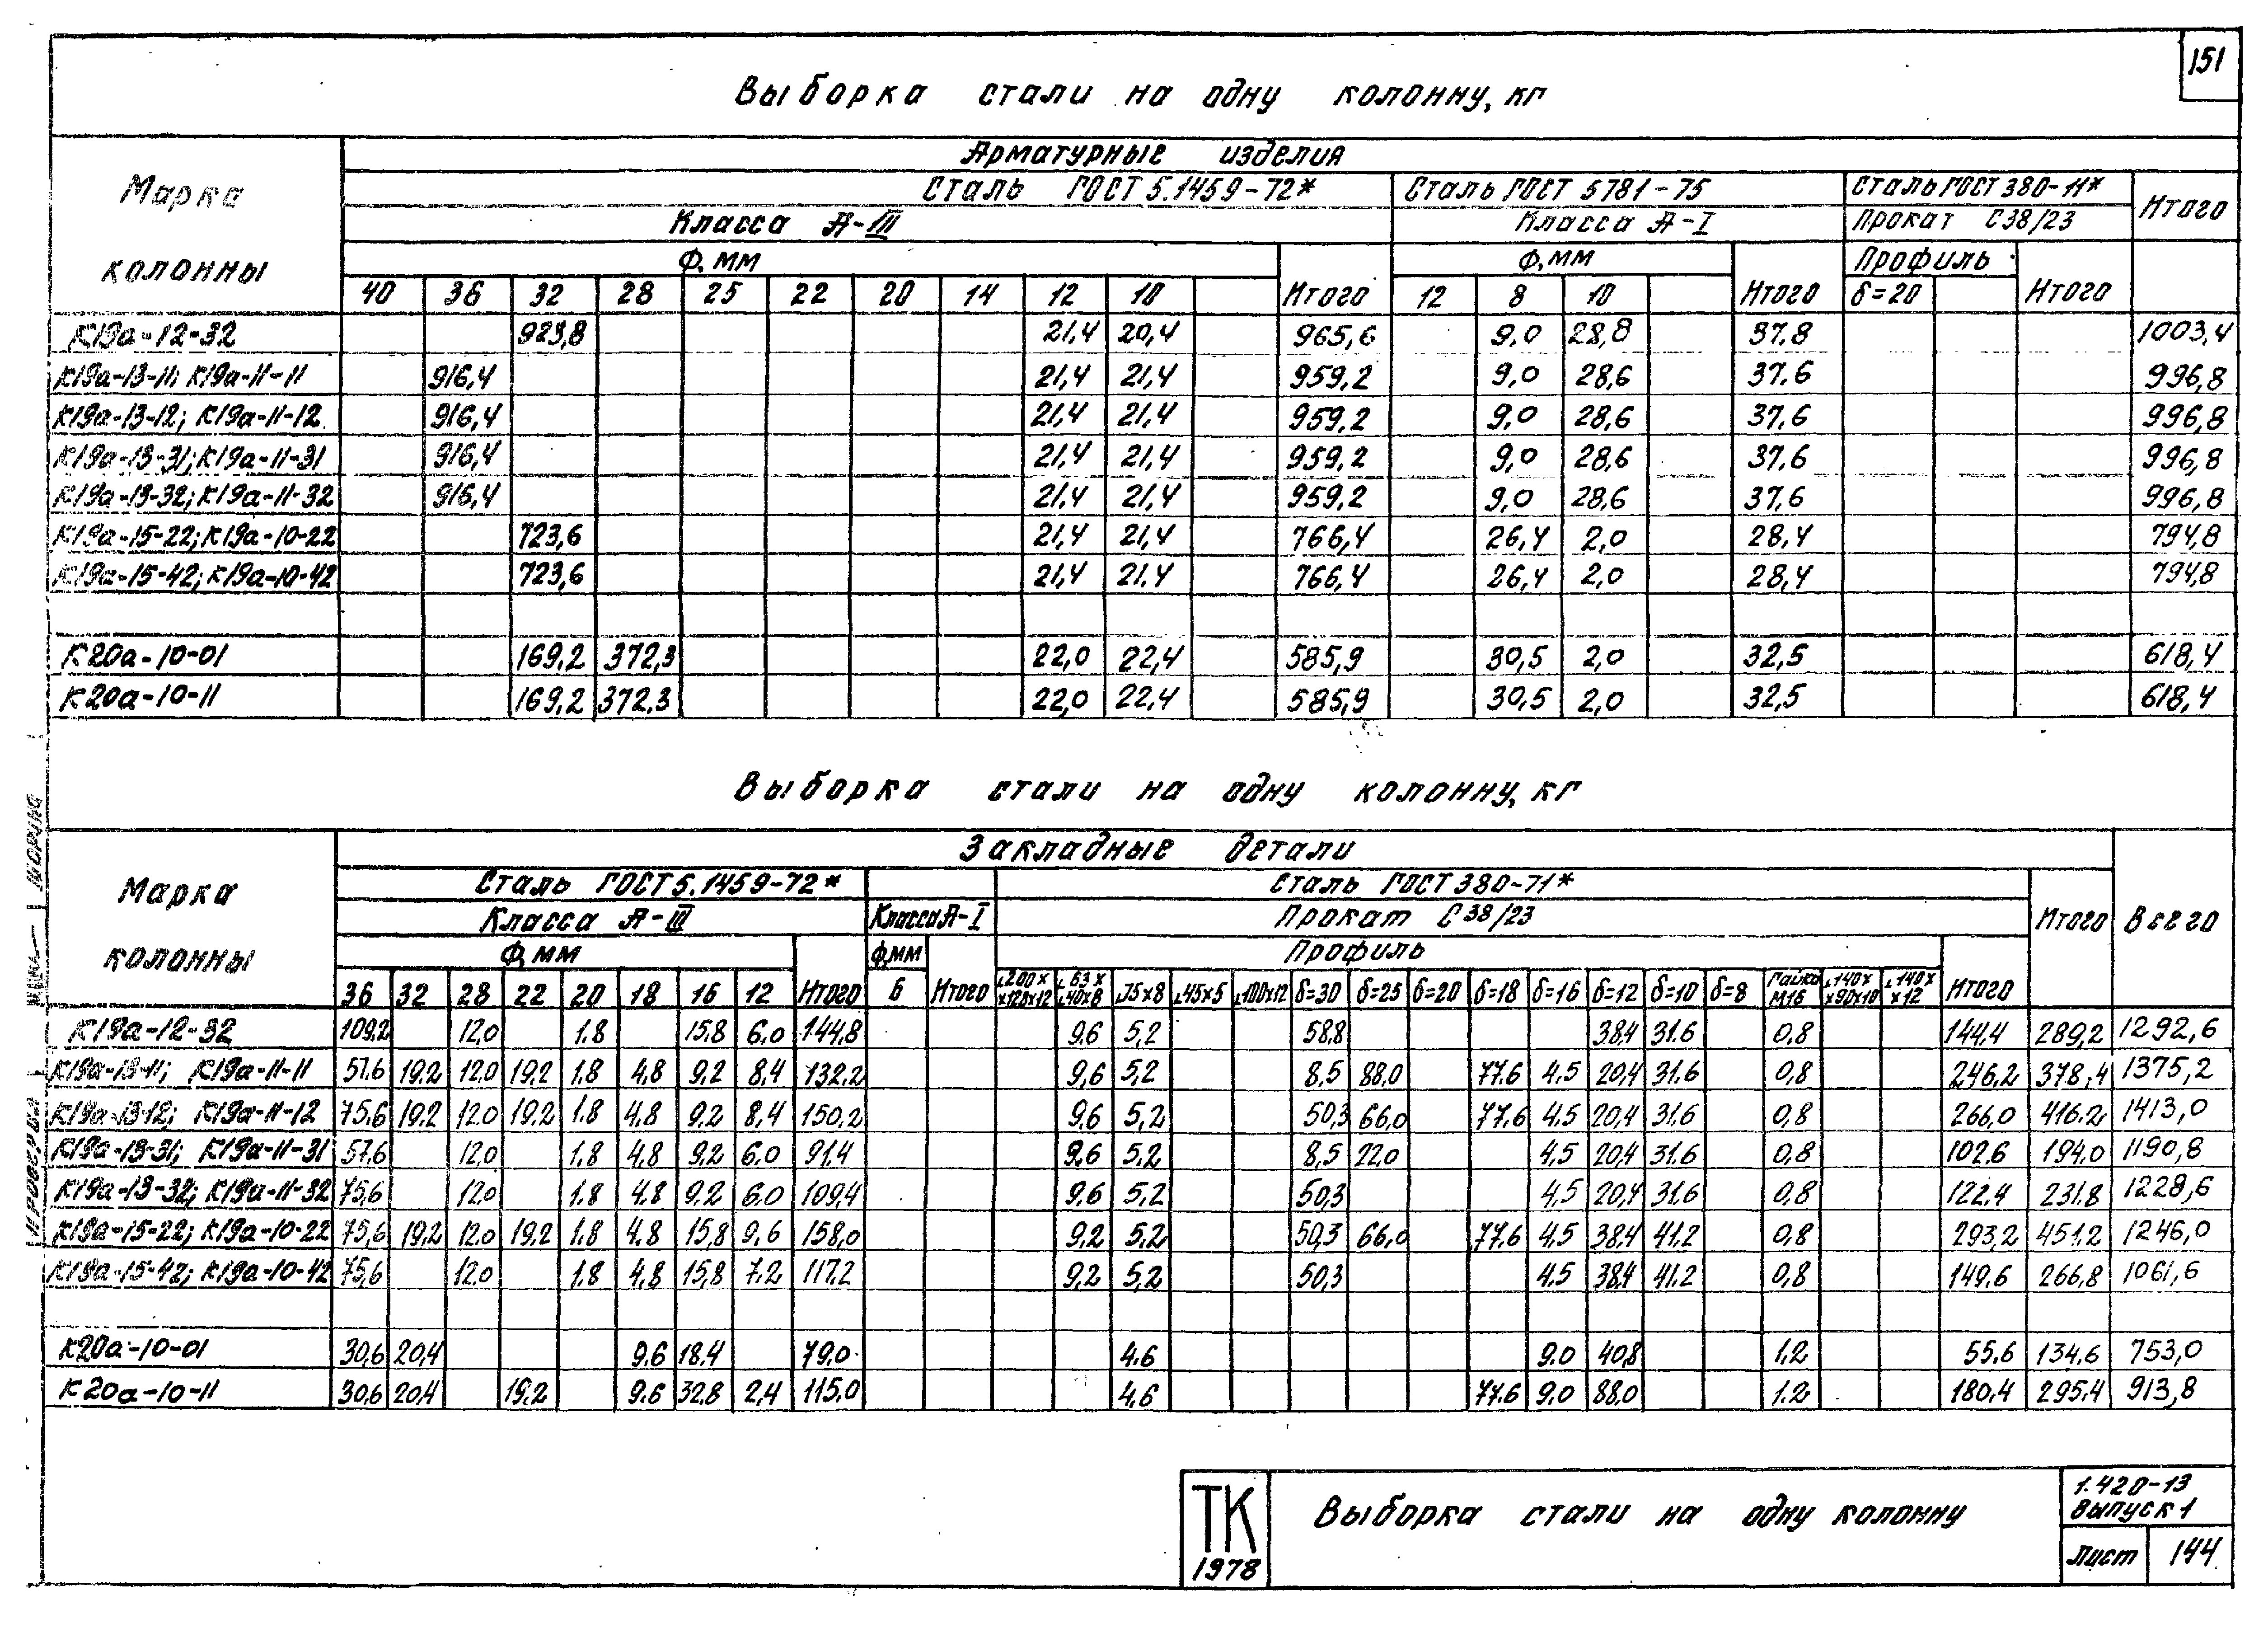 151
Выборка стали на одну колонну, кг
Марка колонны
Арматурные изделия
Сталь ГОСТ 5.1459-72* Сталь ГОСТ 5781-75 Сталь ГОСТ 380-11* Итого
Класса А-III Класса А-I Прокат С38/23
Ф, мм Итого Ф, мм Итого Профиль Итого
40 36 32 28 25 22 20 14 12 10 12 8 10 δ=20
К19а-12-32 923,8 21,4 20,4 965,6 9,0 28,8 37.8 1003,4
К19а-13-11; К19а-11-11 916,4 21,4 21,4 959,2 9,0 28,6 37.6 996,8
К19а-13-12; К19а-11-12 916,4 21,4 21,4 959,2 9,0 28,6 37,6 996,8
К19а-13-31; К19а-11-31 916,4 21,4 21,4 959,2 9,0 28,6 37,6 996,8
К19а-13-32; К19а-11-32 916,4 21,4 21,4 959,2 9,0 28,6 37,6 996,8
К19а-15-22; К19а-10-22 723,6 21,4 21,4 766,4 26,4 2,0 28,4 794,8
К19а-15-42; К19а-10-42 723,6 21,4 21,4 766,4 26,4 2,0 28,4 794,8
К20а-10-01 169,2 372,3 22,0 22,4 585,9 30,5 2,0 32,5 618,4
К20а-10-11 169,2 372,3 22,0 22,4 585,9 30,5 2,0 32,5 618,4
Выборка стали на одну колонну, кг
Марка колонны
Закладные детали Всего
Сталь ГОСТ 5.1459-72* Сталь ГОСТ 380-71* Итого
Класса А-III Класса А-I Прокат С38/23
Ф, мм Итого Ф, мм Итого Профиль Итого
36 32 28 22 20 18 16 12 6 ∟200х х128х12 ∟63х ∟40х8 ∟75х8 ∟45х5 ∟100х12 δ=30 δ=25 δ=20 δ=18 δ=16 δ=12 δ=10 δ=8 Гайка М16 ∟140х х90х10 ∟140х х12
К19а-12-32 109,2 12,0 1.8 15,8 6,0 144,8 9,6 5,2 58,8 38,4 31.6 0,8 144,4 289,2 1292,6
К19а-13-11; К19а-11-11 57.6 19,2 12,0 19,2 1.8 4,8 9,2 8,4 132,2 9,6 5,2 8,5 88,0 77.6 4,5 20,4 31.6 0,8 246,2 378,4 1375,2
К19а-13-12; К19а-11-12 75,6 19,2 12,0 19,2 1.8 4,8 9,2 8,4 150,2 9,6 5,2 50,3 66,0 77.6 4,5 20,4 31,6 0,8 266,0 416.2 1413,0
К19а-13-31; К19а-11-31 57,6 12,0 1.8 4,8 9,2 6,0 91.4 9,6 5,2 8,5 22,0 4,5 20,4 31.6 0,8 102.6 194.0 1190,8
К19а-13-32; К19а-11-32 75,6 12,0 1.8 4.8 9,2 6,0 109,4 9,6 5,2 50,3 4,5 20,4 31.6 0,8 122.4 231.8 1228,6
К19а-15-22; К19а-10-22 75,6 19,2 12,0 19,2 1.8 4.8 15,8 9,6 158,0 9,2 5,2 50,3 66,0 77.6 4,5 38,4 41.2 0,8 293,2 451.2 1246,0
К19а-15-42; К19а-10-42 75,6 12,0 1.8 4,8 15,8 7,2 117.2 9,2 5,2 50,3 4,5 38,4 41.2 0,8 149.6 266,8 1061,6
К20а-10-01 30,6 20,4 9.6 18.4 79,0 4.6 9.0 40,8 1.2 55.6 134.6 753,0
К20а-10-11 30,6 20,4 19,2 9.6 32,8 2,4 115,0 4,6 77.6 9.0 88,0 1.2 180,4 295.4 913,8
ТК
1978
Выборка стали на одну колонну
1.420-13
Выпуск 1
Лист 144